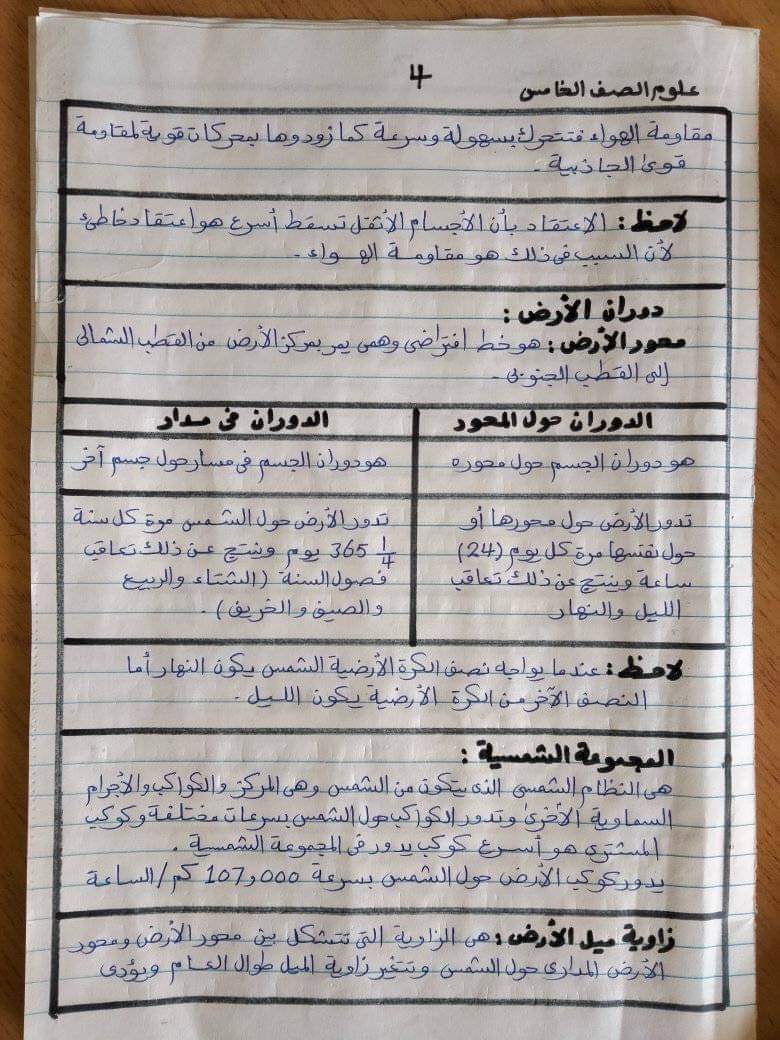 4
علوم الصف الخامس
مقاومة الهواء فتتحرك بسهولة وسرعة كما زودوها بمحركات قوية لمقاومة
قوى الجاذبية .
لاحظ : الاعتقاد بأن الأجسام الأثقل تسقط أسرع هو اعتقاد خاطئ
لأن السبب فى ذلك هو مقاومة الهواء .
دوران الأرض :
محور الأرض : هو خط افتراضى وهمى يمر بمركز الأرض من القطب الشمالى
إلى القطب الجنوبى .
الدوران حول المحور
الدوران فى مدار
هو دوران الجسم حول محوره
هو دوران الجسم فى مسار حول جسم آخر
تدور الأرض حول محورها أو
حول نفسها مرة كل يوم (24)
ساعة وينتج عن ذلك تعاقب
الليل والنهار
تدور الأرض حول الشمس مرة كل سنة
365 1/4 يوم وينتج عن ذلك تعاقب
فصول السنة ( الشتاء والربيع
والصيف والخريف ) .
لاحظ : عندما يواجه نصف الكرة الأرضية الشمس يكون النهار أما
النصف الآخر من الكرة الأرضية يكون الليل .
المجموعة الشمسية :
هى النظام الشمسى الذى يتكون من الشمس وهى المركز والكواكب والأجرام
السماوية الأخرى وتدور الكواكب حول الشمس بسرعات مختلفة وكوكب
المشترى هو أسرع كوكب يدور فى المجموعة الشمسية .
يدور كوكب الأرض حول الشمس بسرعة 107و000 كم/الساعة
زاوية ميل الأرض : هى الزاوية التى تتشكل بين محور الأرض ومحور
الأرض المدارى حول الشمس وتتغير زاوية الميل طوال العام ويؤدى